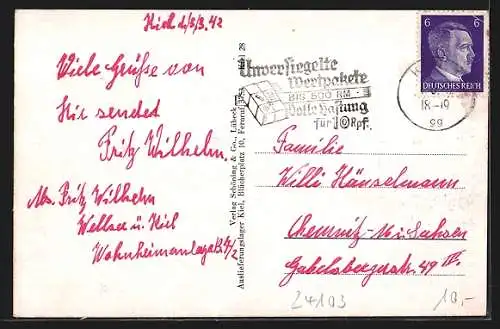 Kiel d/3/3. 42
Viele Grüße von
hir sendet
Fritz Wilhelm.
Abs. Fritz Wilhelm
Wellsee ü. Kiel
Wohnheimanlage
Verlag Schöning & Co., Lübeck
Auslieferungslager Kiel, Blücherplatz 10, Fernruf
28
Unversiegelte
Wertpakete
BIS 500 RM
Volle Haftung
für 10 Rpf.
6 6
DEUTSCHES REICH
K
18-19
Familie
Willi Hänselmann
Chemnitz i/Sachsen
Gabelsbergerstr. 49 IV.
24103
10,-